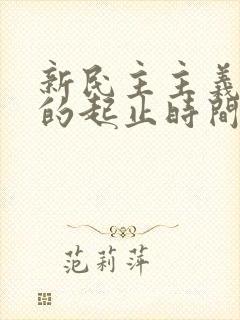 新民主主義
的起止時間
范莉萍